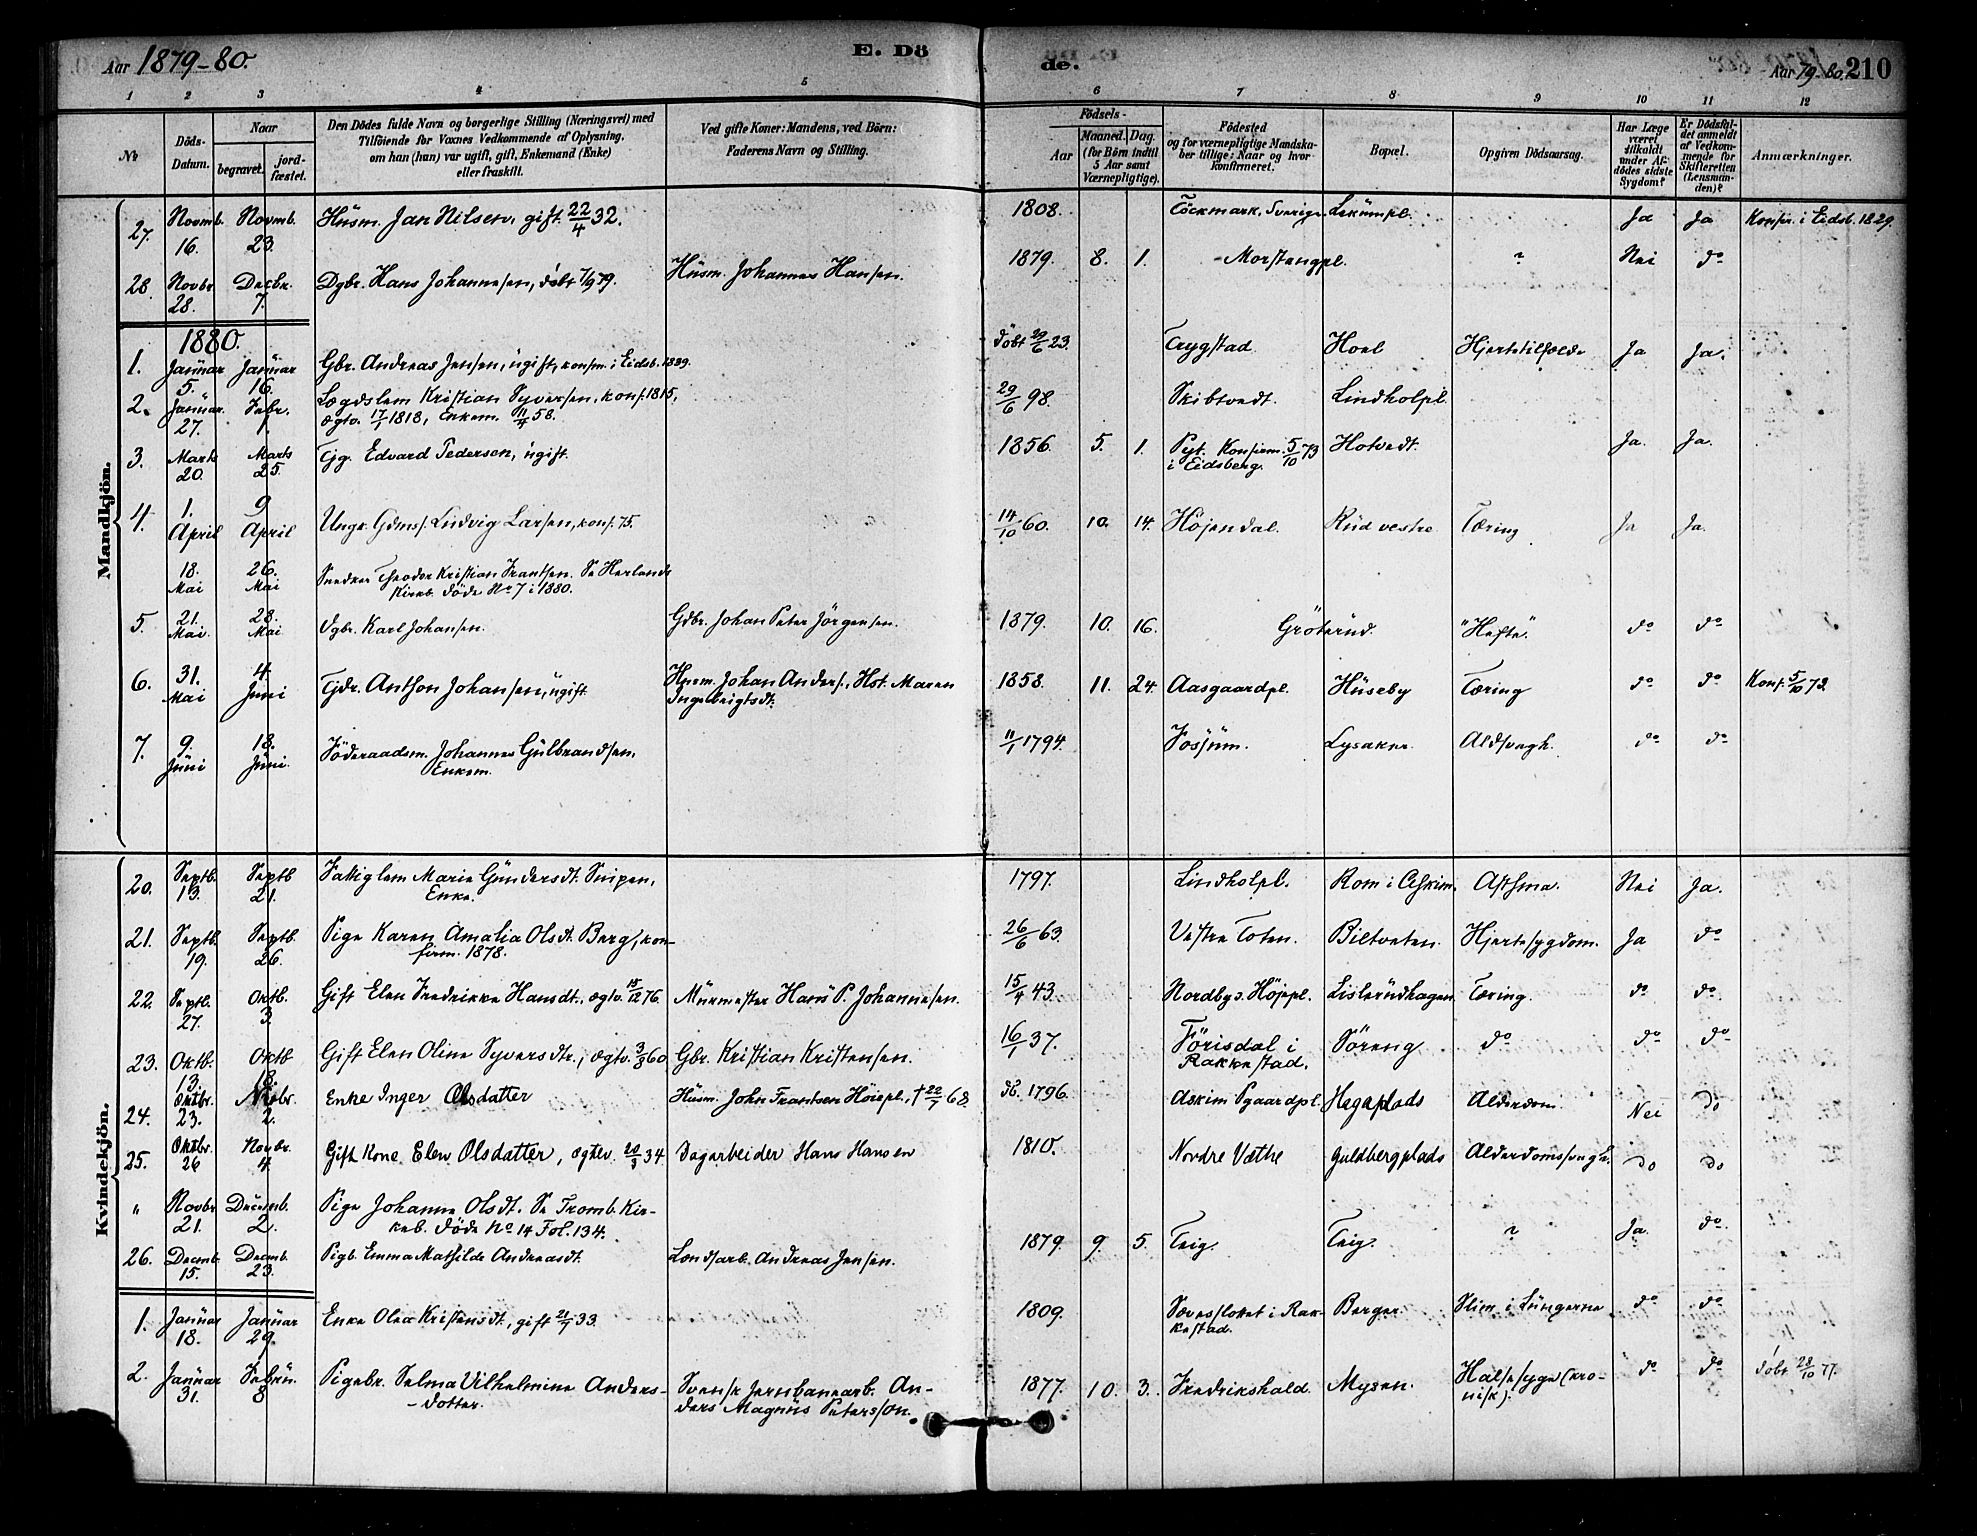 Aar 1879-80.
E. Dö
de.
Aar 79-80. 210
1 2 3 4 5 6 7 8 9 10 11 12
No
Döds-Datum.
Naar
begravet.
jordfæstet.
Den Dödes fulde Navn og borgerlige Stilling (Næringsvei) med
Tilföiende for Voxnes Vedkommende af Oplysning,
om han (hun) var ugift, gift, Enkemand (Enke)
eller fraskilt.
Ved gifte Koner: Mandens, ved Börn:
Faderens Navn og Stilling.
Födsels-
Aar
Maaned. Dag.
(for Börn indtil
5 Aar samt
Værnepligtige).
Födested
og for værnepligtige Mandskaber tillige: Naar og hvor
konfirmeret.
Bopæl.
Opgiven Dödsaarsag.
Har Læge
været
tilkaldt
under Afdödes sidste
Sygdom?
Er Dödsfaldet anmeldt
af Vedkommende for
Skifteretten
(Lensmanden)?
Anmærkninger.
Mandkjön.
27. Novmb. 16. Novmb. 23. Husm. Jan Nilsen, gift 22/4 32. 1808. Töckmark, Sverige. Lekumpl. Ja Ja Konfir. i Eidsb. 1829.
28. Novbr 28. Decbr. 7. Dgbr. Hans Johannesen, döbt 7/9 79. Husm. Johannes Hansen. 1879. 8. 1. Morstongpl. ? Nei do
1880.
1. Januar 5. Januar 16. Gbr. Andreas Jensen, ugift, konfm. i Eidsb. 1839. döbt 29/6 23. Trygstad Hoel Hjertetilfælde Ja Ja.
2. Januar. 27. Febr. 1. Lægdslem Kristian Syversen, konf. 1815,
ægtv. 17/1 1818, Enkem. 11/4 58. 29/6 98. Skibtvedt. Lindholpl.
3. Marts 20. Marts 25. Tjg. Edvard Pedersen, ugift. 1856. 5. 1. Pgt. Konfirm. 5/10 73
i Eidsberg. Hotvedt. Ja. Ja.
4. 1. April 9 April Ungk. Gdms. Ludvig Larsen, konf. 75. 14/10 60. 10. 14. Höjendal. Rud vestre Tæring Ja Ja.
18. Mai 26. Mai Snedker Theodor Kristian Frantsen. Se Herlands
Kirkeb. döde No 7 i 1880.
5. 21. Mai. 28. Mai Dgbr. Karl Johansen. Gdbr. Johan Peter Jörgensen. 1879. 10. 16. Gröterud. "Hefte". do do
6. 31. Mai 4. Juni Tjdr. Anthon Johansen, ugift Husm. Johan Anders., Hst. Maren
Ingebrigtsdt. 1858. 11. 24. Aasgaardpl. Huseby Tæring do do Konf. 5/10 72.
7. 9. Juni 18. Juni. Föderaadsm. Johannes Gulbrandsen,
Enkem. 11/1 1794. Fossum. Lysaker. Aldsvagh. do do
Kvindekjön.
20. Septb. 13. Septb 21. Fattiglem Marie Gundersdt. Snipen,
Enke. 1797. Lindholpl. Rom i Askim. Asthma. Nei Ja.
21. Septb. 19. Septb. 26. Pige Karen Amalia Olsdt. Berg, konfirm. 1878. 26/6 63. Vestre Toten. Biltveten. Hjertesygdom. Ja do
22. Septb. 27. Oktb. 3. Gift Elen Fredrikke Hansdt., ægtv. 15/12 76. Murmester Hans P. Johannesen. 15/4 43. Nordbys. Höjepl. Lislerudhagen. Tæring. do do
23. Oktb. 13. Oktb 18. Gift Elen Oline Syversdtr., ægtv. 3/3 60. Gbr. Kristian Kristensen. 16/1 37. Förisdal i
Rakkestad. Söreng do do do
24. Oktbr. 23. Novbr. 2. Enke Inger Olsdatter Husm. John Frantsen Höiepl. † 22/7 68 db. 1796. Askim Pgaardpl. Hagaplads Alderdom Nei do
25. Oktbr. 26 Novbr. 4. Gift Kone Elen Olsdatter, ægtev. 20/3 34 Dagarbeider Hans Hansen 1810. Nordre Væthe Guldbergplads Alderdomssvagh. do do
" Novbr 21. Decemb. 2. Pige Johanne Olsdt. Se Tromb. Kirkeb. Döde No 14 Fol. 134.
26. Decmb. 15. Decmb. 23. Pigb. Emma Mathilde Andreasdt. Londsarb. Andreas Jensen. 1879 9. 5. Teig. Teig. ? Ja. do
1. Januar 18. Januar 29. Enke Olea Kristensdt, gift 21/7 33. 1809. Rakkestad. Berger. Slim i Lungerne do do
2. Januar 31. Februar. 8 Pigebr. Selma Vilhelmine Andersdotter. Svensk Jernbanearb. Anders Magnus Petersson. 1877. 10. 3. Fredrikshald. Mysen. Halsesyge (kronisk). do do döbt 28/10 77.